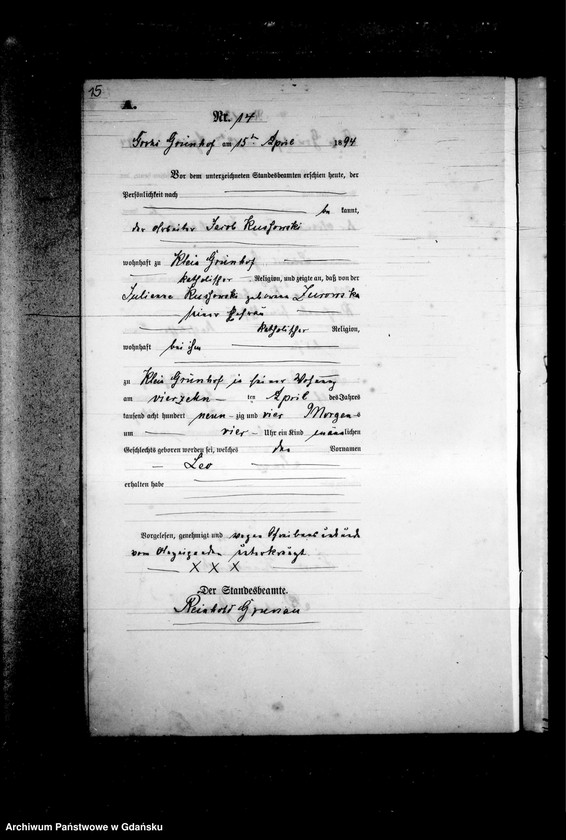 15
A.
Nr. 14
Grünhof am 15ten April 1894
Vor dem unterzeichneten Standesbeamten erschien heute, der
Persönlichkeit nach
be kannt,
der Arbeiter Jacob
wohnhaft zu Klein Grünhof
katholischer Religion, und zeigte an, daß von der
geborene
seiner Ehefrau
katholischer Religion,
wohnhaft bei ihm
zu Klein Grünhof in seiner Wohnung
am vierzehn ten April des Jahres
tausend acht hundert neun zig und vier Morgens
um vier Uhr ein Kind männlichen
Geschlechts geboren worden sei, welches den Vornamen
Leo
erhalten habe
Vorgelesen, genehmigt und wegen
vom Anzeigenden unterkreuzt
X X X
Der Standesbeamte.
Reinhold
Archiwum Państwowe w Gdańsku